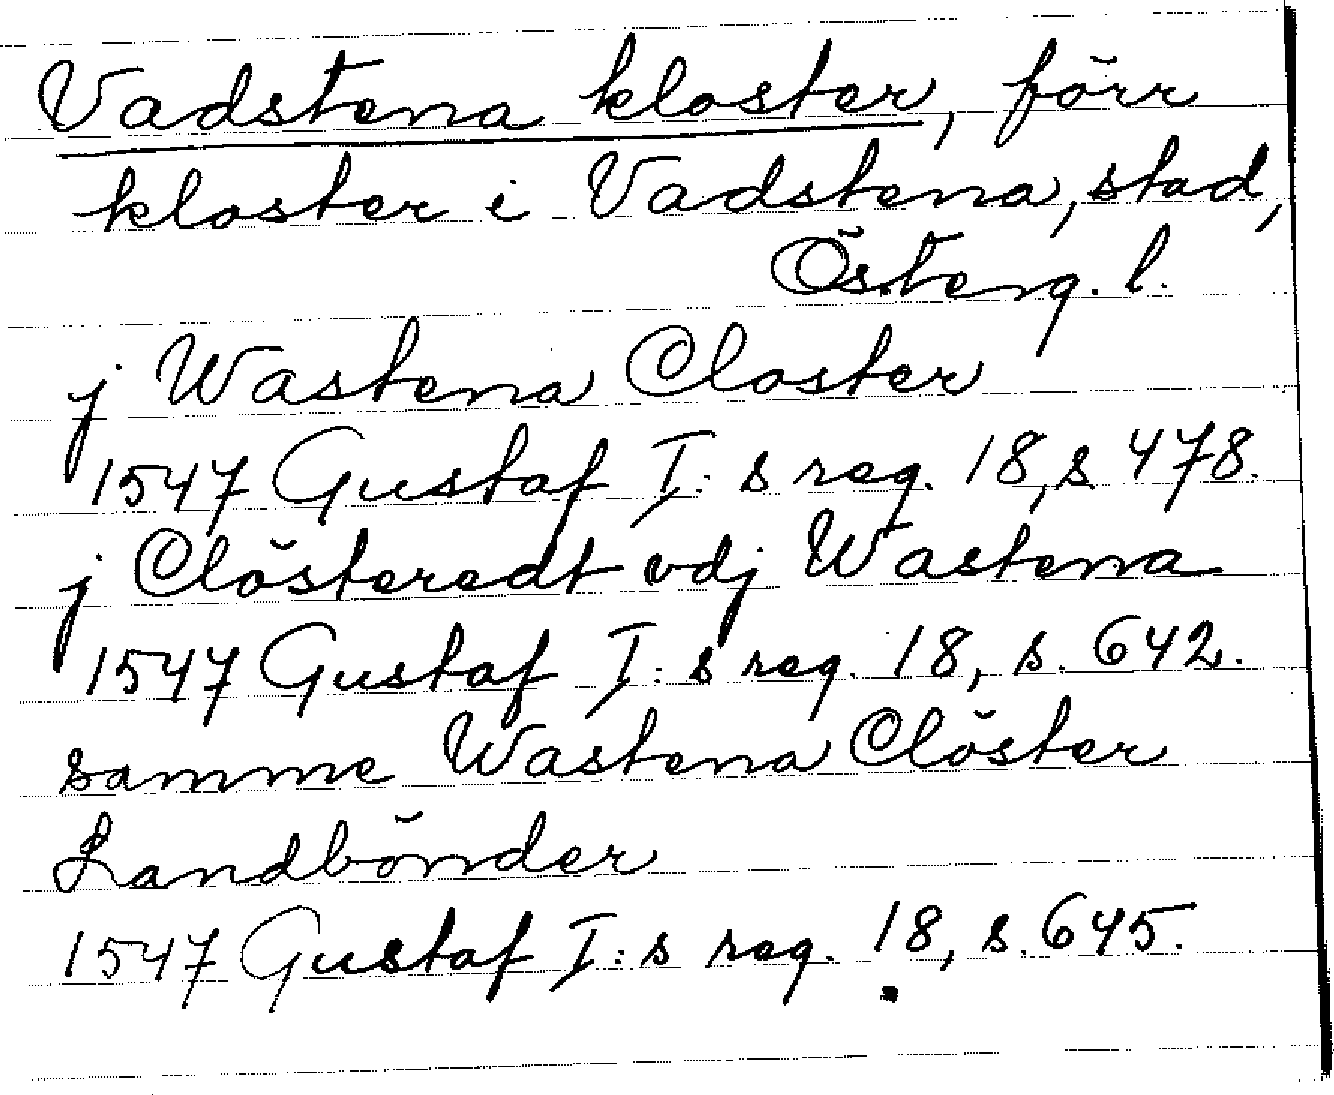 Vadstena kloster, förr
kloster i Vadstena, stad,
Österg. l.
j Wastena Closter
1547 Gustaf I:s reg. 18, s 478.
j Clösteredt vdj Wastena
1547 Gustaf I:s reg. 18, s. 642.
samme Wastena Clöster
Landbönder
1547 Gustaf I:s reg. 18, s. 645.